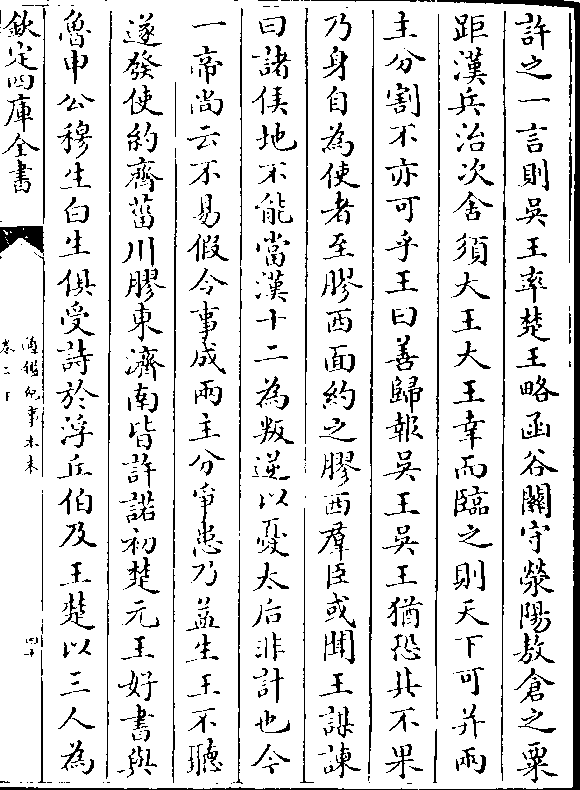 許之一言則吳王率楚王略函谷關守滎陽敖倉之粟
距漢兵治次舍須大王大王幸而臨之則天下可并兩
主分割不亦可乎王曰善歸報吳王吳王猶恐其不果
乃身自為使者至膠西面約之膠西羣臣或聞王謀諫
曰諸侯地不能當漢十二為叛逆以憂太后非計也今
一帝尚云不易假令事成兩主分爭患乃益生王不聽
遂發使約齊菑川膠東濟南皆許諾初楚元王好書與
魯申公穆生白生俱受詩於浮丘伯及王楚以三人為
欽定四庫全書
通鑑紀事本末
卷二下
四十